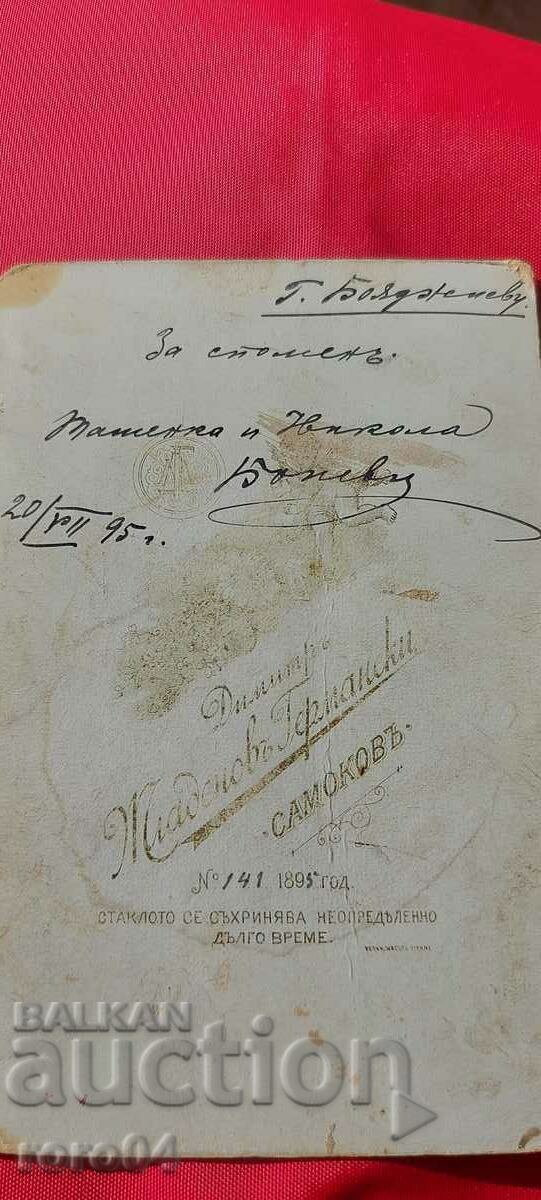 Г. Бояджиеву.
За споменъ.
Ташенка и Никола
Боневи
20/VII 95 г.
Димитръ
Младеновъ Германски
САМОКОВЪ.
№ 141 1895 год.
СТАКЛОТО СЕ СЪХРИНЯВА НЕОПРЕДѢЛЕННО
ДЪЛГО ВРЕМЕ.
BALKAN
auction
roro04